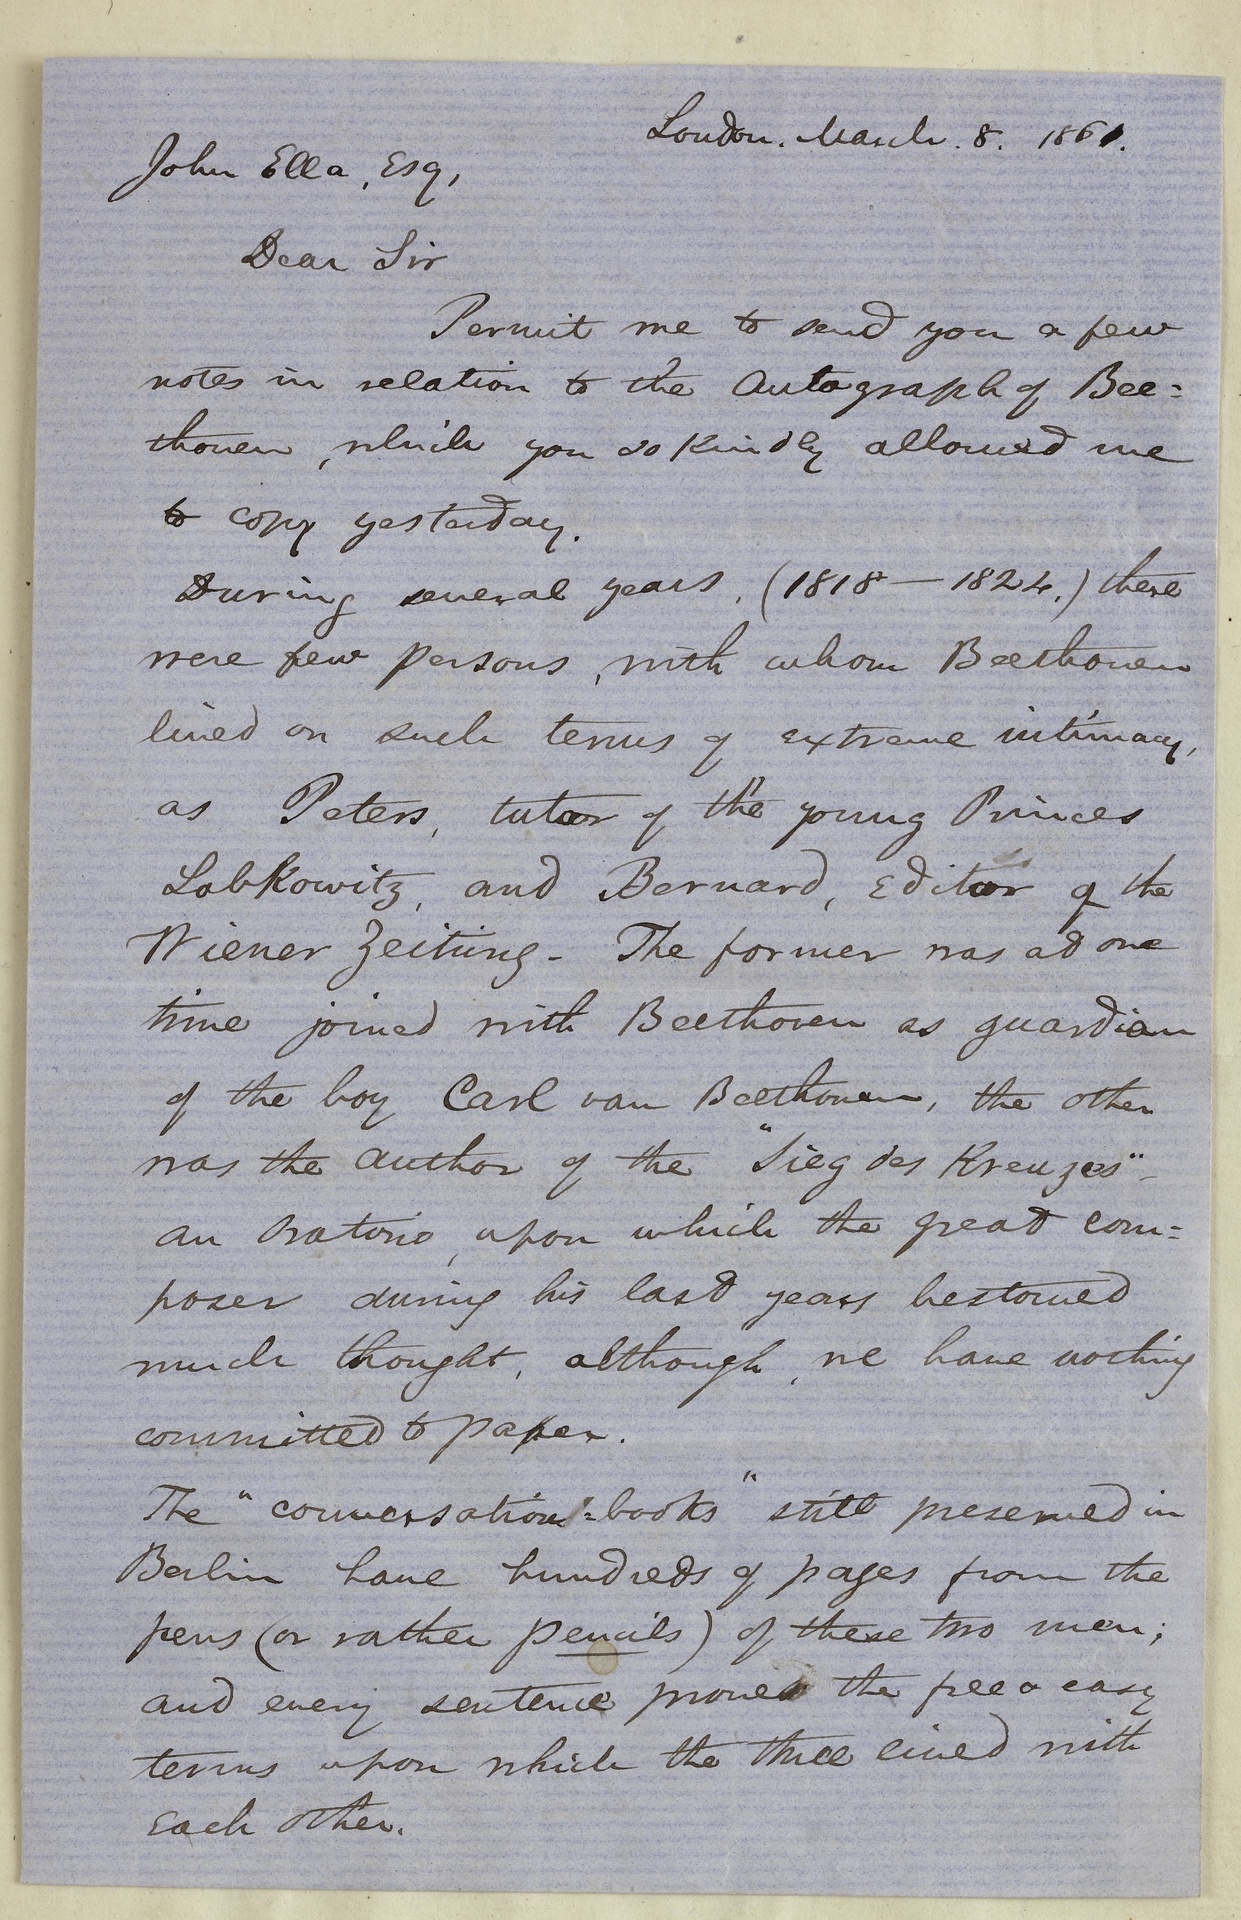 London. March. 8. 1861.
John Ella, Esq,
Dear Sir
Permit me to send you a few
notes in relation to the Autograph of Bee=
thoven, which you so kindly allowed me
to copy yesterday.
During several years, (1818 — 1824,) there
were few persons, with whom Beethoven
lived on such terms of extreme intimacy,
as Peters, tutor of the young Princes
Lobkowitz, and Bernard, Editor of the
Wiener Zeitung - The former was at one
time joined with Beethoven as guardian
of the boy Carl van Beethoven, the other
was the author of the "Sieg des Kreuzes" -
an Oratorio, upon which the great com=
poser during his last years bestowed
much thought, although, we have nothing
committed to paper.
The "conversation=books" still preserved in
Berlin have hundreds of pages from the
pens (or rather pencils) of these two men;
and every sentence proves the free & easy
terms upon which the three lived with
each other.